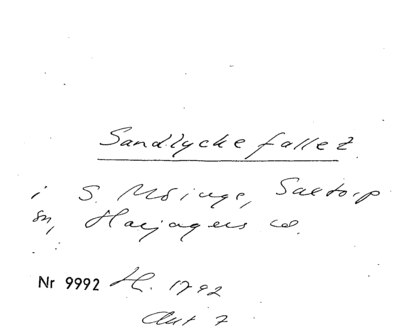 Sandlyckefallet
i S. Möinge, Saxtorp
sn, Harjagers co.
Nr 9992 H. 1792
Akt 7